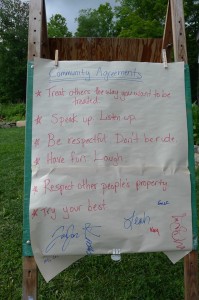 Community Agreements
* Treat others the way you want to be
treated
* Speak up Listen up
* Be respectful Don't be rude
* Have fun. Laugh
* Respect other people's property
* Try your best
Leah